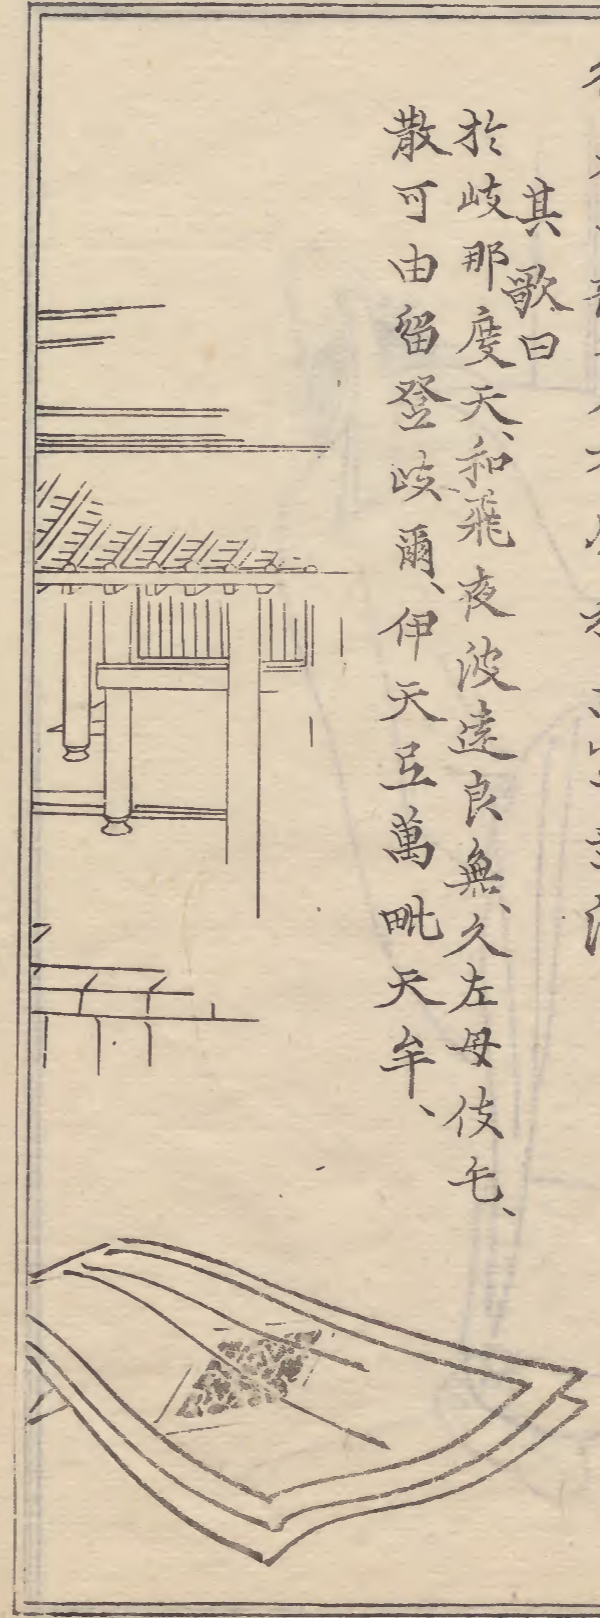 其歌曰
於岐那度天、和飛夜波遠良無、久左母伎毛、
散可由留登岐爾、伊天弖萬毗天牟、